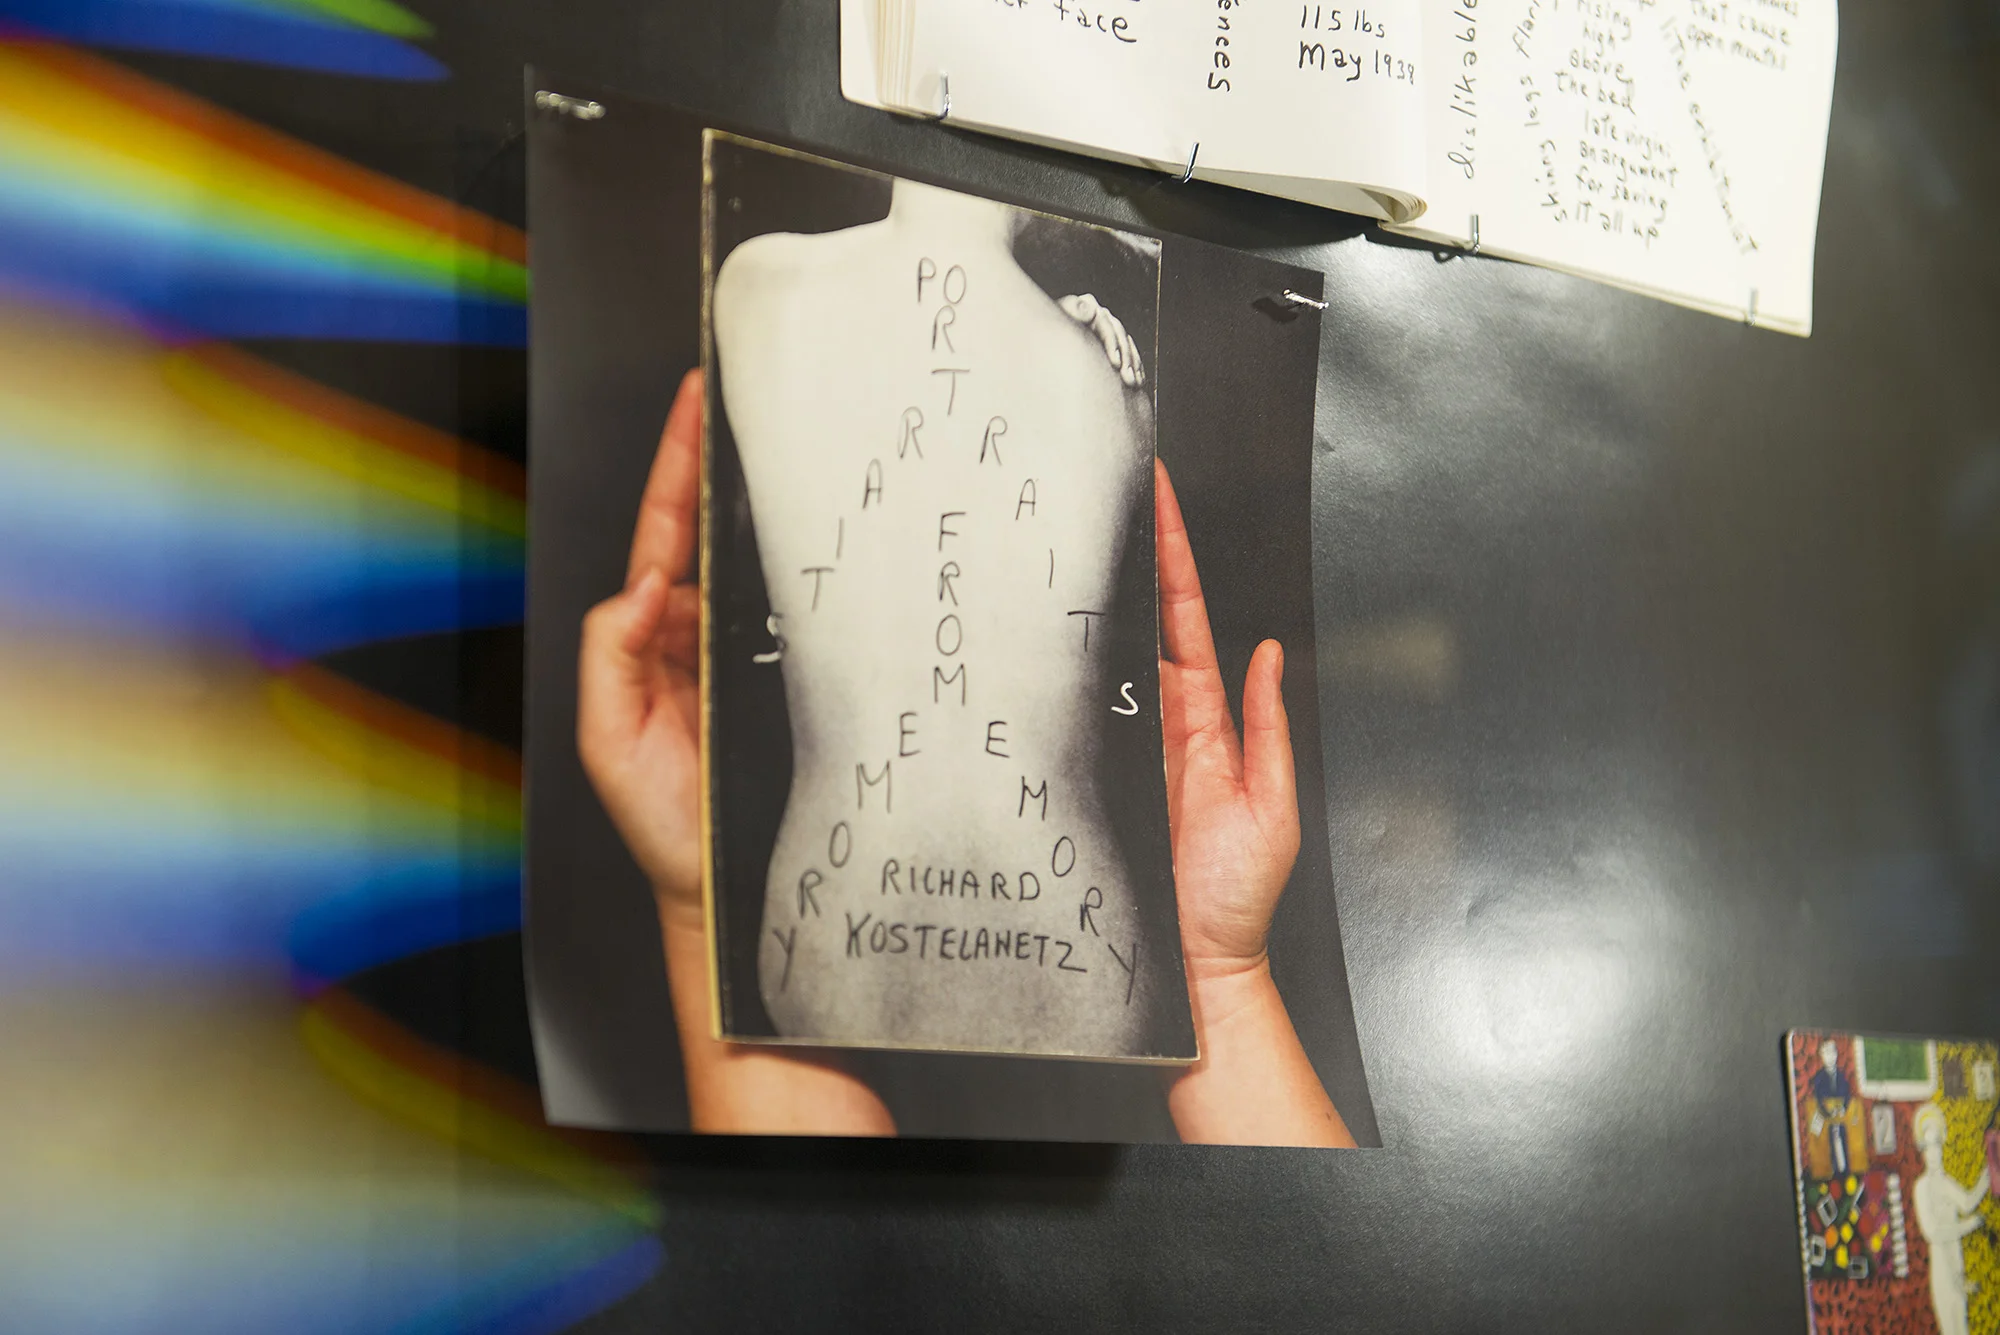 face
115 lbs
May 1938
dislikable
rising
high
above
the bed
late virgin
an argument
for saving
it all up
that cause
open mouths
PO
R
T
R R
A A
I I
T T
S S
F
R
O
M
E E
M M
O O
R R
Y Y
RICHARD
KOSTELANETZ